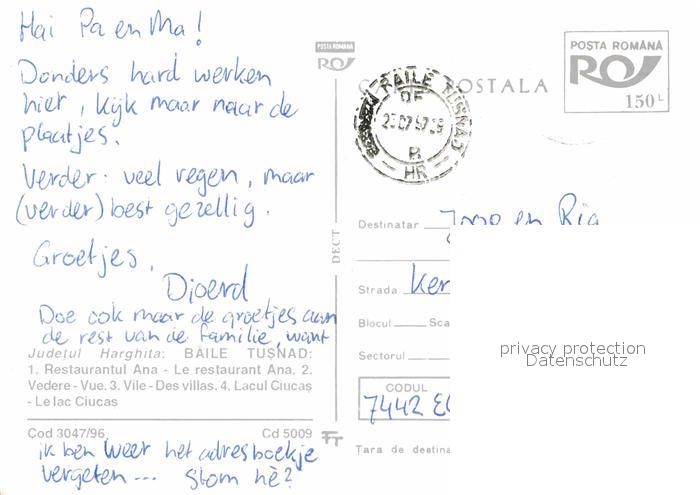 Hai Pa en Ma!
Donders hard werken
hier, kijk maar naar de
plaatjes.
Verder: veel regen, maar
(verder) best gezellig.
Groetjes,
Djoerd
Doe ook maar de groetjes aan
de rest van de familie, want
Județul Harghita: BĂILE TUȘNAD:
1. Restaurantul Ana - Le restaurant Ana. 2.
Vedere - Vue. 3. Vile - Des villas. 4. Lacul Ciucaș
- Le lac Ciucas
Cod 3047/96 Cd 5009
ik ben weer het adresboekje
vergeten... Stom hè?
DECT
POSTA ROMÂNĂ
POȘTA ROMÂNĂ
150 L
POSTALA
BAILE TUSNAD
OF
HR
Destinatar en Ria
Strada Ker
Blocul Sca
Sectorul
CODUL
7442
Țara de destina
privacy protection
Datenschutz